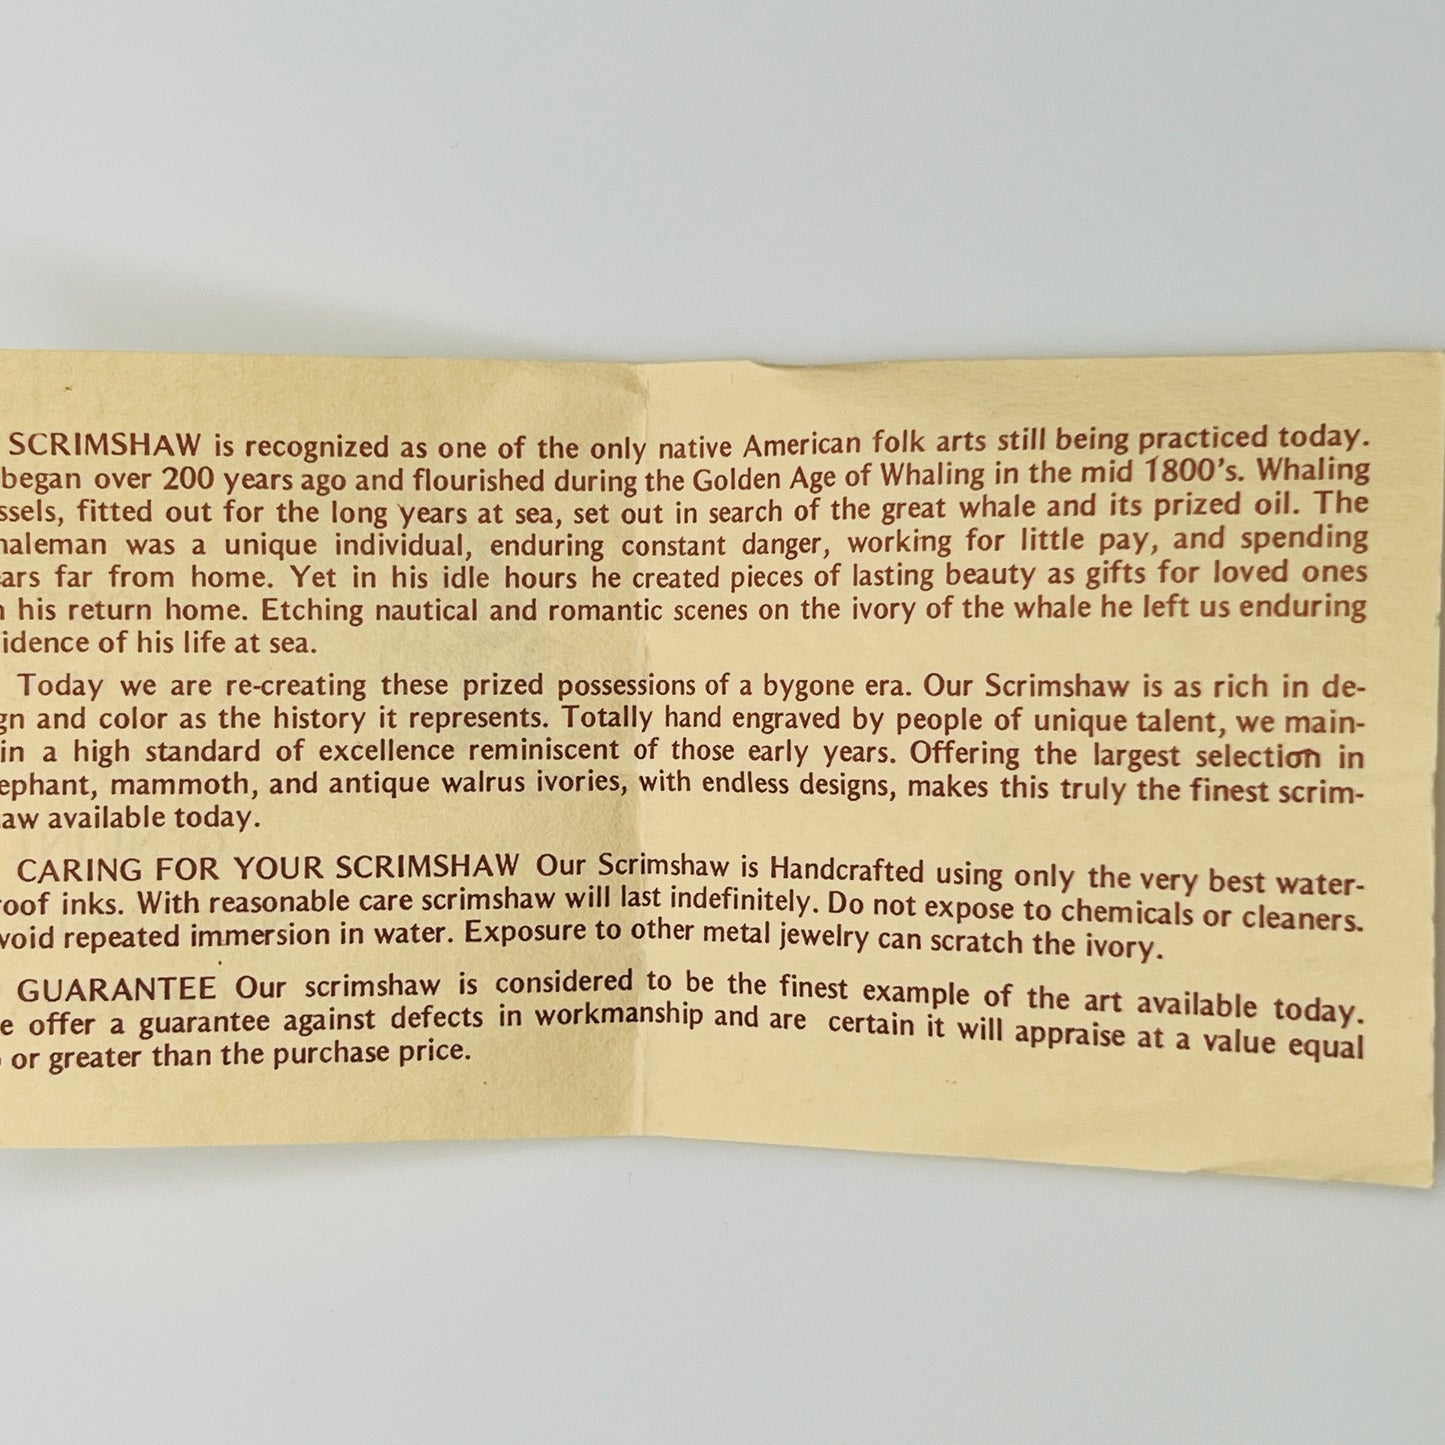 SCRIMSHAW is recognized as one of the only native American folk arts still being practiced today.
began over 200 years ago and flourished during the Golden Age of Whaling in the mid 1800's. Whaling
ssels, fitted out for the long years at sea, set out in search of the great whale and its prized oil. The
haleman was a unique individual, enduring constant danger, working for little pay, and spending
ars far from home. Yet in his idle hours he created pieces of lasting beauty as gifts for loved ones
n his return home. Etching nautical and romantic scenes on the ivory of the whale he left us enduring
idence of his life at sea.
Today we are re-creating these prized possessions of a bygone era. Our Scrimshaw is as rich in de-
gn and color as the history it represents. Totally hand engraved by people of unique talent, we main-
in a high standard of excellence reminiscent of those early years. Offering the largest selection in
ephant, mammoth, and antique walrus ivories, with endless designs, makes this truly the finest scrim-
aw available today.
CARING FOR YOUR SCRIMSHAW Our Scrimshaw is Handcrafted using only the very best water-
roof inks. With reasonable care scrimshaw will last indefinitely. Do not expose to chemicals or cleaners.
void repeated immersion in water. Exposure to other metal jewelry can scratch the ivory.
GUARANTEE Our scrimshaw is considered to be the finest example of the art available today.
e offer a guarantee against defects in workmanship and are certain it will appraise at a value equal
or greater than the purchase price.